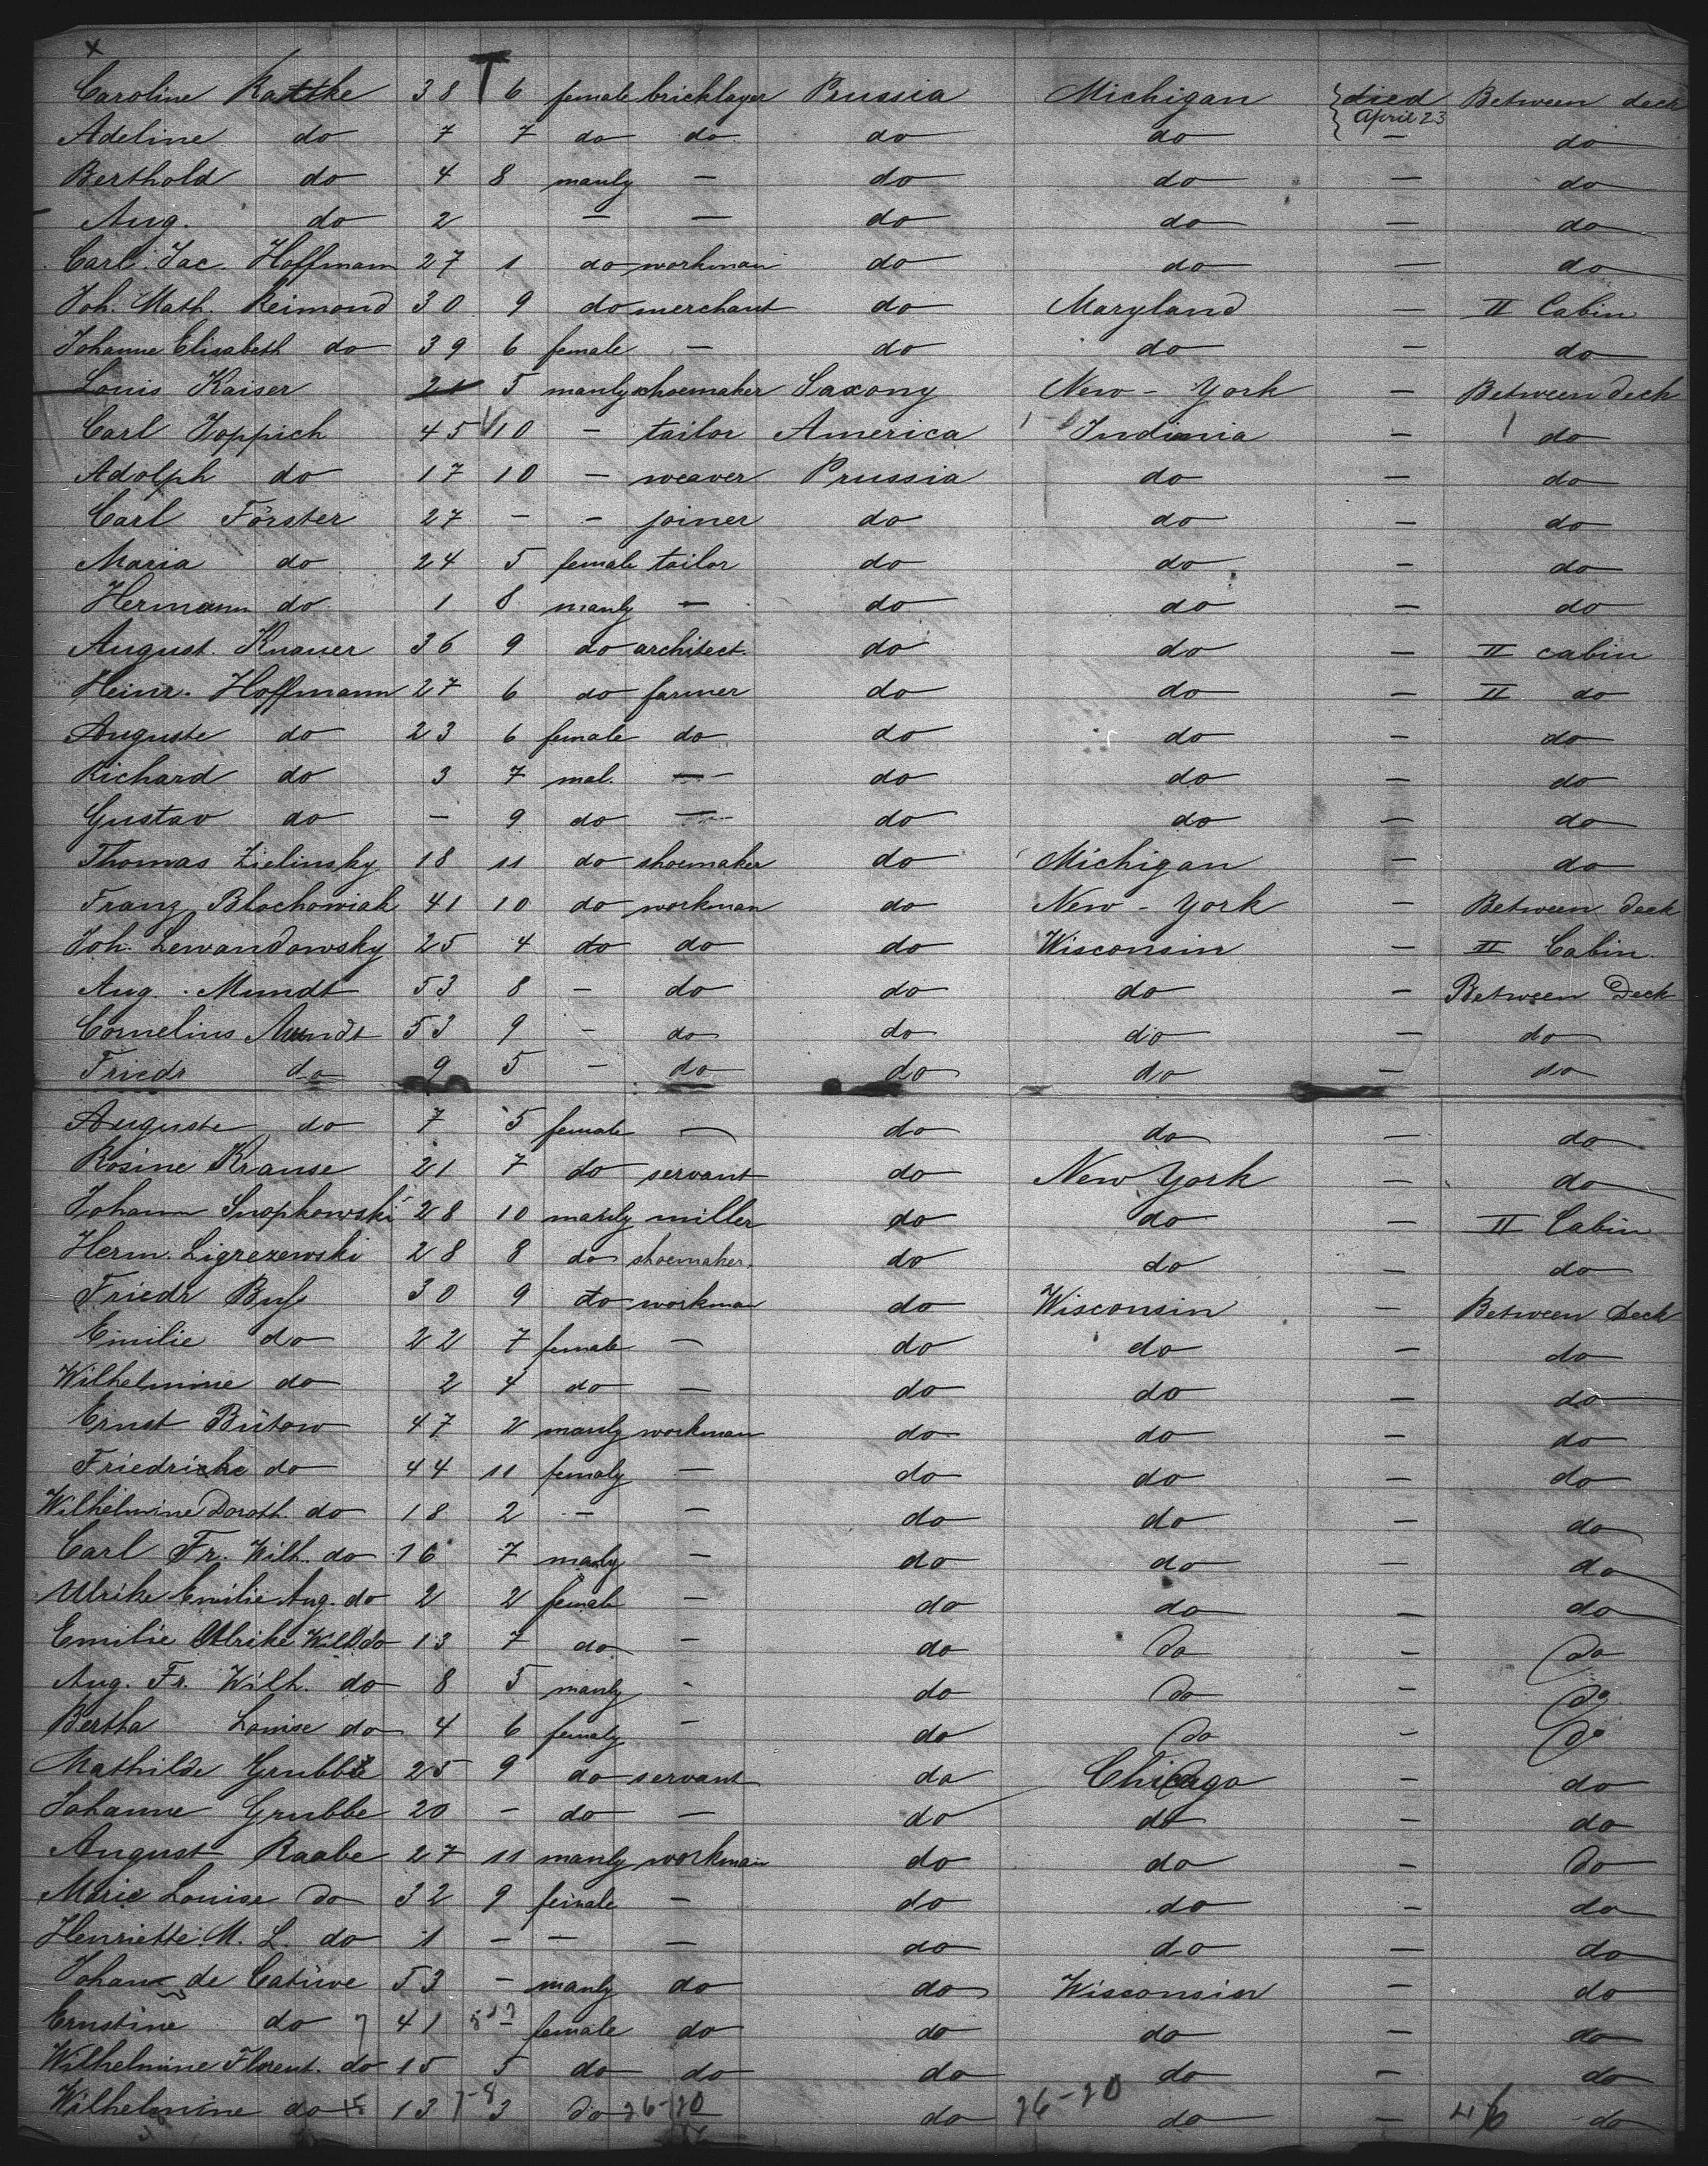 x
Caroline Kattke 38 6 female bricklayer Prussia Michigan died April 23 Between deck
Adeline do 7 7 do do do do — do
Berthold do 4 8 manly — do do — do
Aug. do 2 — — do do — do
Carl Jac. Hoffmann 27 1 do workman do do — do
Joh. Math. Reimond 30 9 do merchant do Maryland — II Cabin
Johanne Elisabeth do 39 6 female — do do — do
Louis Kaiser 21 5 manly shoemaker Saxony New-York — Between deck
Carl Hoppich 45 10 — tailor America Indiania — do
Adolph do 17 10 — weaver Prussia do — do
Carl Förster 27 — — joiner do do — do
Maria do 24 5 female tailor do do — do
Hermann do 1 8 manly — do do — do
August. Knauer 36 9 do architect. do do — II cabin
Heinr. Hoffmann 27 6 do farmer do do — II do
Auguste do 23 6 female do do do — do
Richard do 3 7 mal. — do do — do
Gustav do — 9 do — do do — do
Thomas Zielinsky 18 11 do shoemaker do Michigan — do
Franz Blochowiak 41 10 do workman do New-York — Between deck
Joh. Lewandowsky 25 4 do do do Wisconsin — II Cabin
Aug. Mundt 53 8 — do do do — Between Deck
Cornelius Mundt 53 9 — do do do — do
Friedr do 9 5 — do do do — do
Auguste do 7 5 female — do do — do
Rosine Krause 21 7 do servant do New York — do
Johann Snopkowski 28 10 manly miller do do — II Cabin
Herm. Ligrezewski 28 8 do shoemaker. do do — do
Friedr Buß 30 9 do workman do Wisconsin — Between Deck
Emilie do 22 7 female — do do — do
Wilhelmine do 2 4 do — do do — do
Ernst Bütow 47 2 manly workman do do — do
Friedricke do 44 11 femaly — do do — do
Wilhelmine Doroth. do 18 2 — — do do — do
Carl Fr. Wilh. do 16 7 manly — do do — do
Ulrike Emilie Aug. do 2 2 female — do do — do
Emilie Ulrike Wilh do 13 7 do — do do — do
Aug. Fr. Wilh. do 8 5 manly — do do — do
Bertha Louise do 4 6 femaly — do do — do
Mathilde Grubbe 25 9 do servant do Chicago — do
Johanne Grubbe 20 — do — do do — do
August Raabe 27 11 manly workman do do — do
Marie Louise do 32 9 female — do do — do
Henriette M. L. do 1 — — — do do — do
Johann de Catüve 53 — manly do do Wisconsin — do
Ernstine do 41 — female do do do — do
Wilhelmine Florent. do 15 5 do do do do — do
Wilhelmine do 13 3 do 26-20 do 26-20 do — 46 do